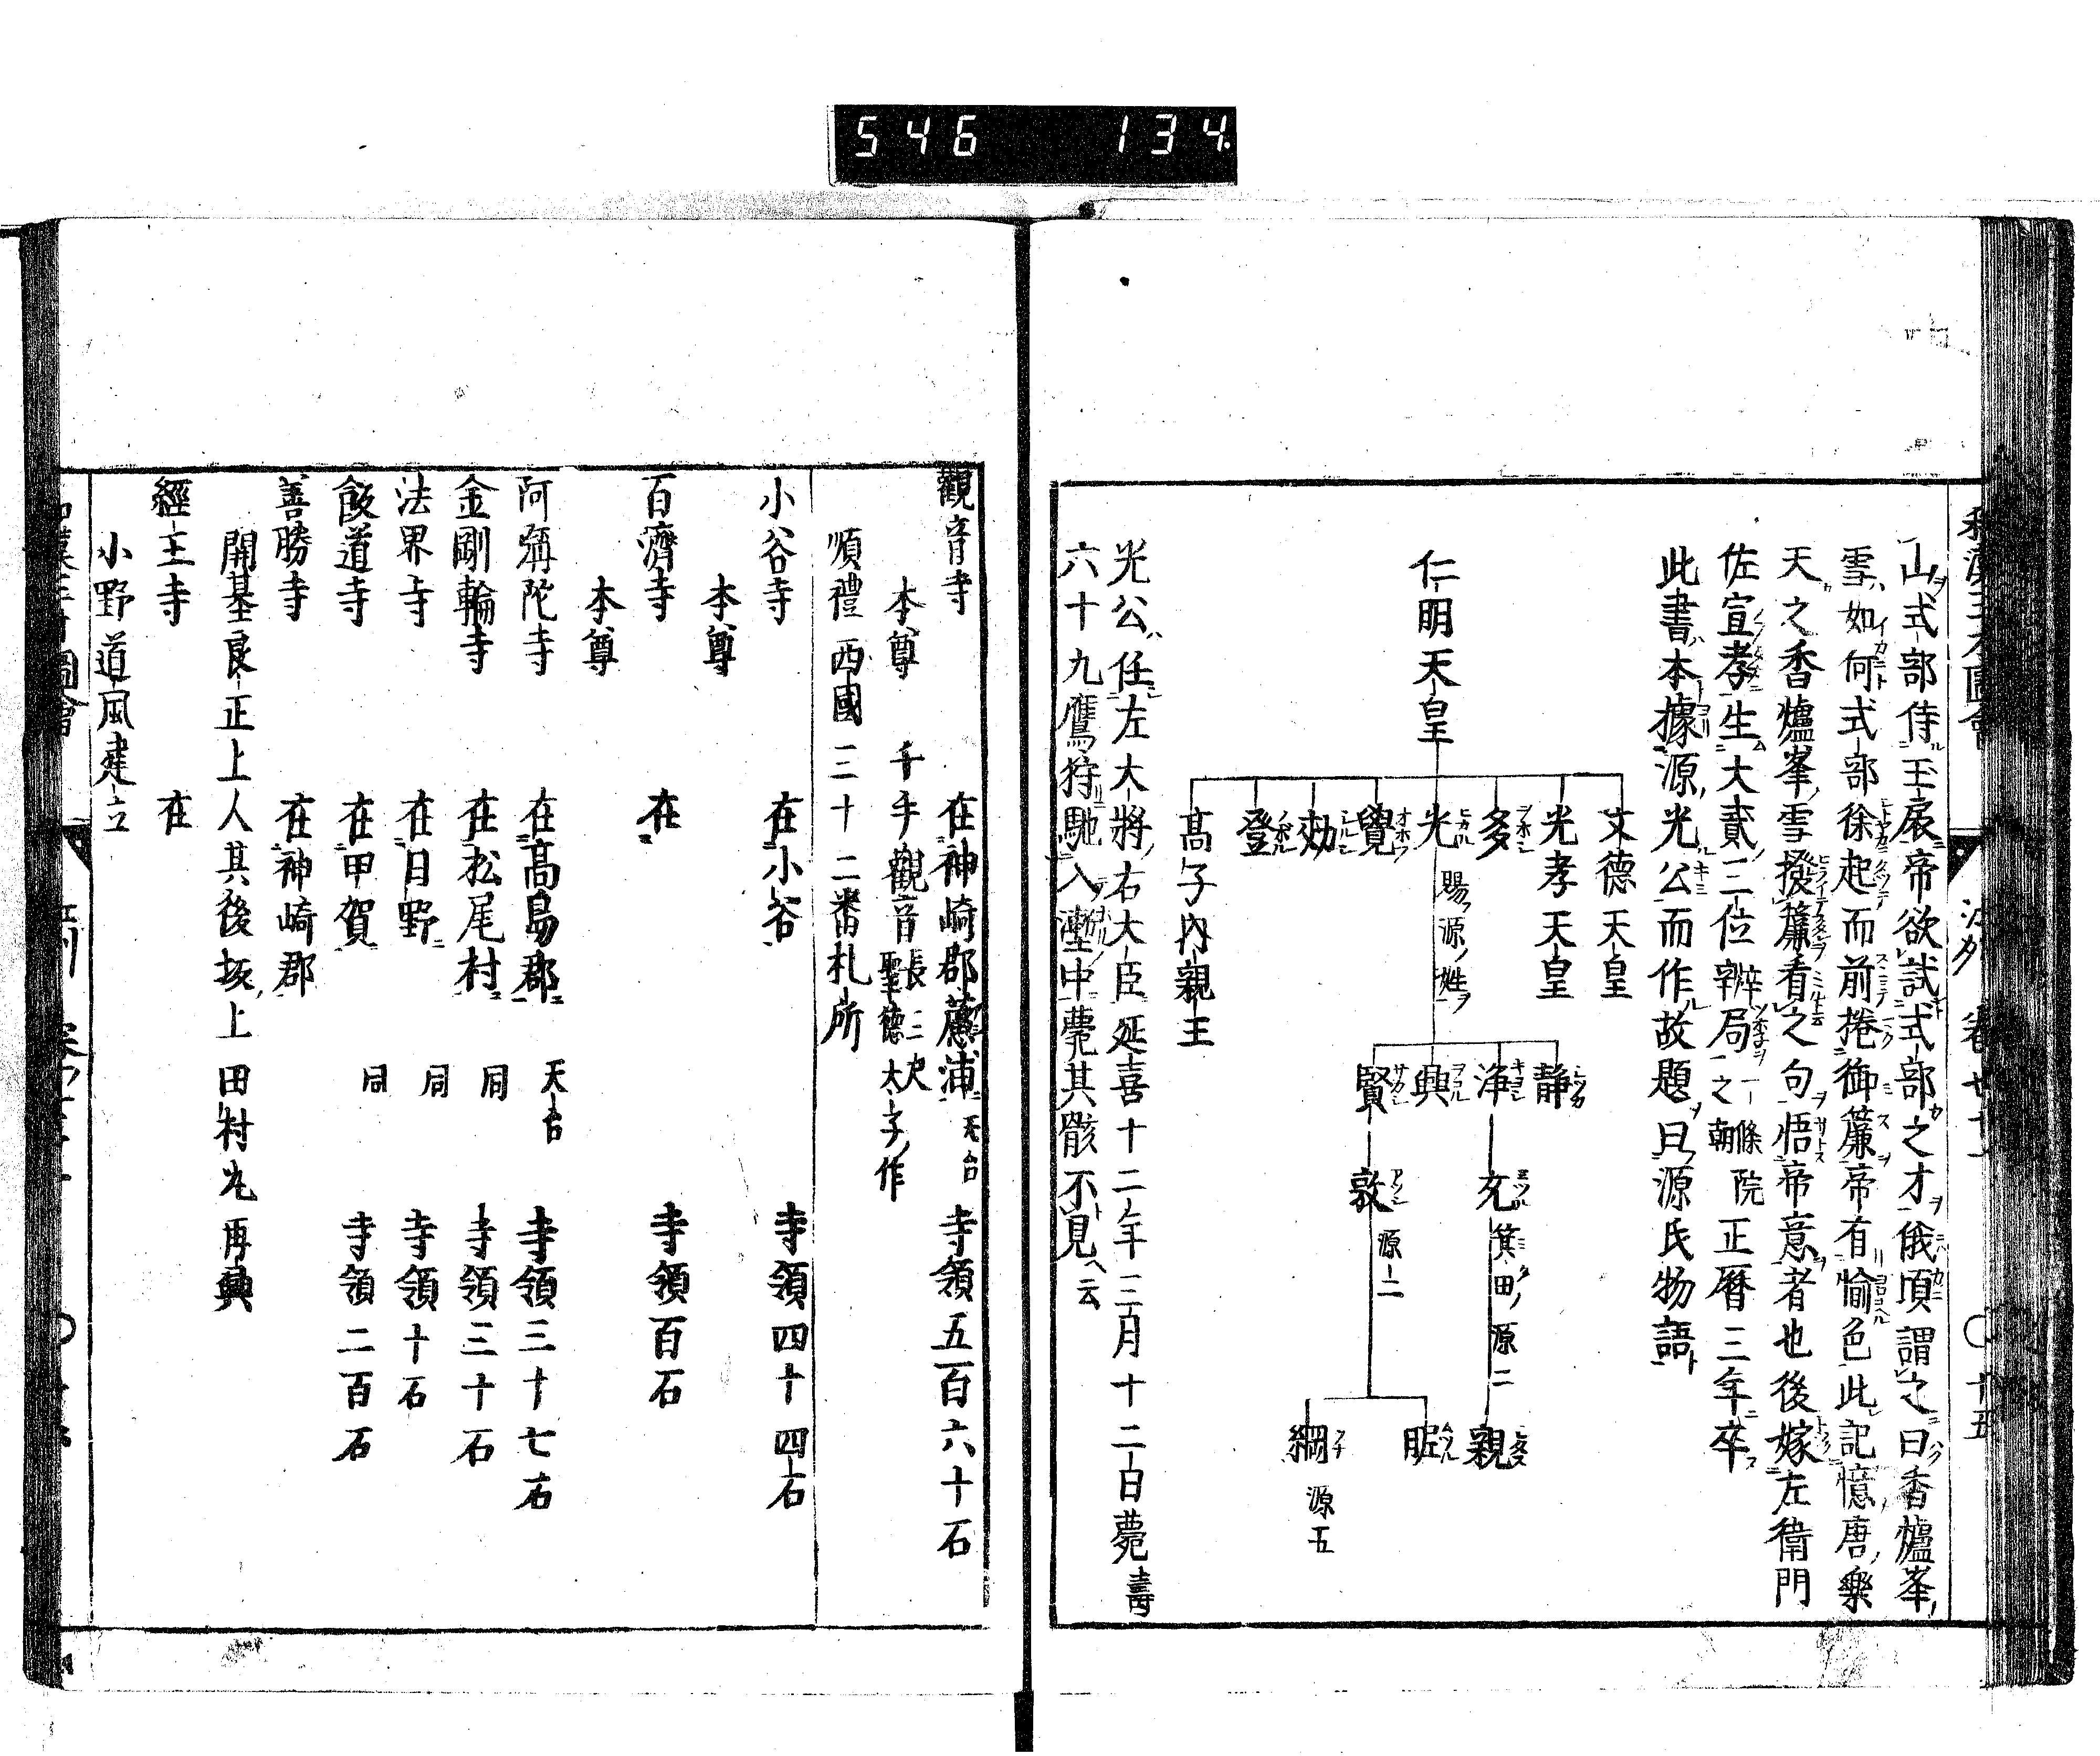 546 134
和漢三才圖會 江州 卷七十一 〇十五
山式部侍玉扆帝欲試式部之才俄頃謂之曰香爐峯
雪如何式部徐起而前捲御簾帝有愉色此記憶唐樂
天之香爐峯雪撥簾看之句悟帝意者也後嫁左衞門
佐宣孝生大貳三位辨局一條院之朝正暦三年卒
此書本據源光公而作故題曰源氏物語
仁明天皇
文德天皇
光孝天皇
多
光 賜源姓
覺
効
登
高子內親王
静
浄
興
賢
充 箕田源二
敦 源二
親
䏈
綱 源五
光公任左大將右大臣延喜十二年三月十二日薨壽
六十九鷹狩馳入塹中薨其骸不見云
觀音寺 在神崎郡 天台 寺領五百六十石
本尊 千手觀音 長三尺 聖德太子作
順禮西國三十二番札所
小谷寺 在小谷 寺領四十四石
本尊
百濟寺 在 寺領百石
本尊
阿彌陀寺 在高島郡 天台 寺領三十七石
金剛輪寺 在松尾村 同 寺領三十石
法界寺 在日野 同 寺領十石
飯道寺 在甲賀 同 寺領二百石
善勝寺 在神崎郡
開基良正上人其後坂上田村丸再興
經王寺 在
小野道風建立